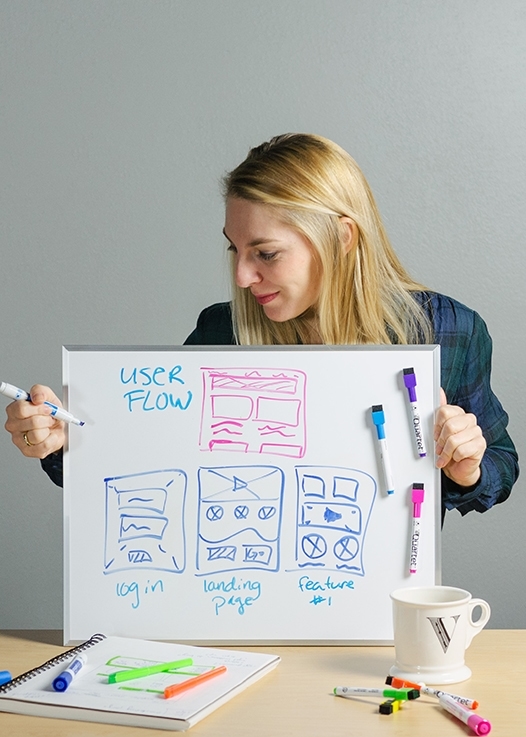 USER
FLOW
log in
landing
page
feature
#1
Quartet
Quartet
V